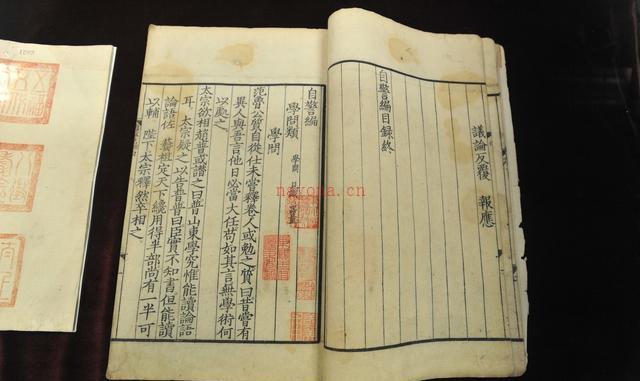 議論反覆 報應
自警編目録終
自警編
學問類 學問
學問
范魯公質自從仕未嘗釋卷人或勉之質曰昔嘗有
異人與吾言他日必當大任苟如其言無學術何
以處之
太宗欲相趙普或譖之曰普山東學究惟能讀論語
耳 太宗疑之以告普普曰臣實不知書但能讀
論語佐 藝祖定天下纔用得半部尚有一半可
以輔 陛下太宗釋然卒相之
nayona.cn